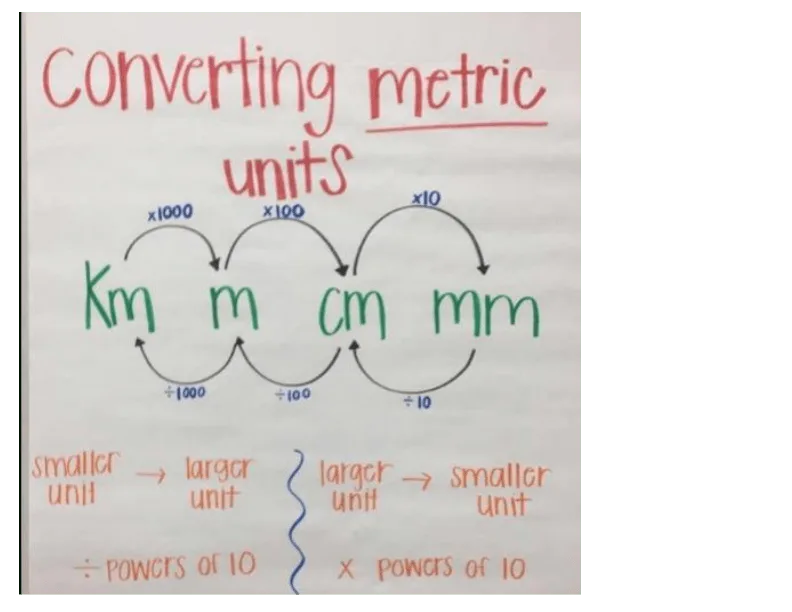 Converting metric
units
x1000 x100 x10
Km m cm mm
÷1000 ÷100 ÷10
smaller → larger larger → smaller
unit unit unit unit
÷ powers of 10 x powers of 10